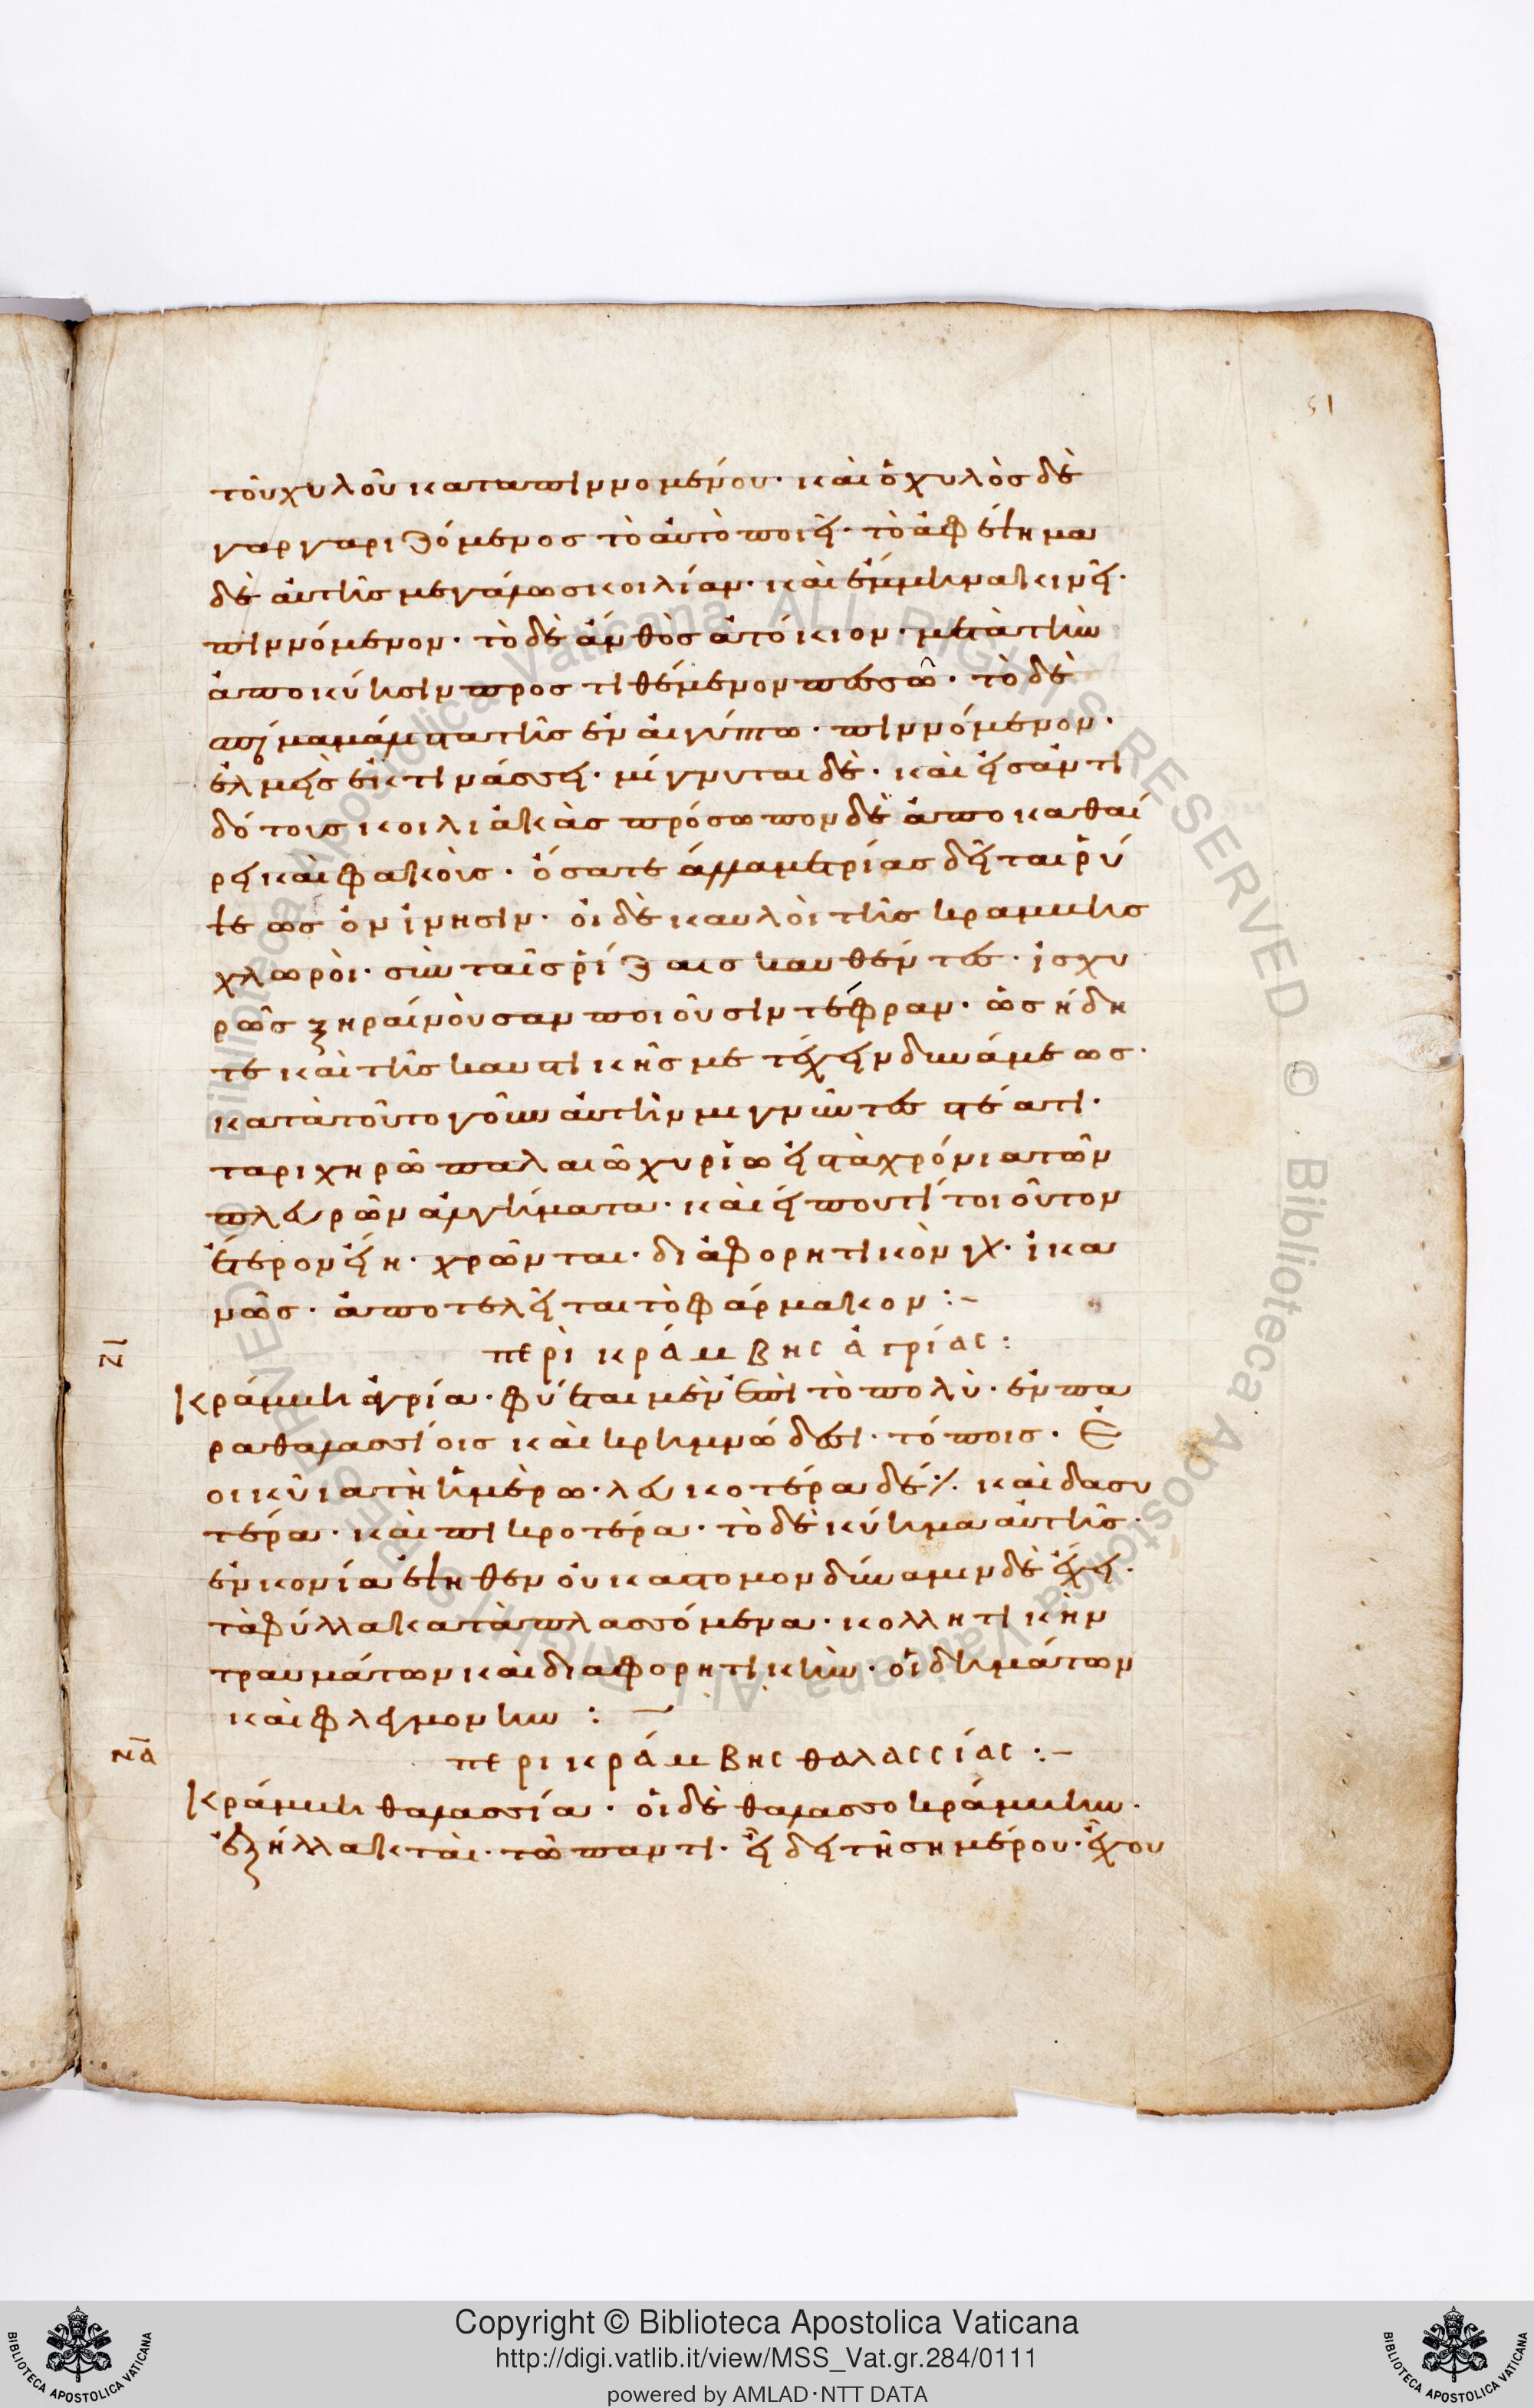 51
τοῦ χυλοῦ καταπιννομένου· καὶ ὁ χυλὸς δὲ
γαργαριζόμενος τὸ αὐτὸ ποιεῖ· τὸ ἀφέψημα
δὲ αὐτῆς μεγάλωσι κοιλίαν· καὶ ἔμμηνα κινεῖ·
πιννόμενον· τὸ δὲ ἄνθος ἀτόκιον· μετὰ τὴν
ἀποκύησιν προστιθέμενον πεσσῶ· τὸ δὲ
σπέρμα μάλιστα τῆς ἐν αἰγύπτω· πιννόμενον·
ἕλμεις ἐκτινάσσει· μίγνυται δὲ· καὶ εἰς ἀντι
δότους κοιλιακὰς πρόσωπον δὲ ἀποκαθαί
ρει καὶ φακοὺς· ὅσα τε ἄλλα μετρίας δεῖται ῥύ
ψεως ὀνίνησιν· οἱ δὲ καυλοὶ τῆς κράμβης
χλωροὶ· σὺν ταῖς ῥίζαις καυθέντες· ἰσχυ
ρῶς ξηραίνουσαν ποιοῦσιν τέφραν· ὡς ἤδη
τε καὶ τῆς καυστικῆς μετέχειν δυνάμεως·
κατὰ τοῦτο γοῦν αὐτὴν μιγνῦντες στέατι·
ταριχηρῶ παλαιῶ χυρίω εἰς τὰ χρόνια τῶν
πλευρῶν ἀλγήματα· καὶ εἴ που τί τοιοῦτον
ἕτερον εἴη· χρῶνται· διαφορητικὸν γὰρ· ἱκα
νῶς· ἀποτελεῖται τὸ φάρμακον :-
περὶ κράμβης ἀγρίας :
Κράμβη ἀγρία· φύεται μὲν ἐπὶ τὸ πολὺ· ἐν πα
ραθαλασσίοις καὶ κρημνώδεσι· τόποις· Ἐ
οικυῖα τῆ ἡμέρω· λευκοτέρα δέ ·/. καὶ δασυ
τέρα· καὶ πικροτέρα· τὸ δὲ κύημα αὐτῆς·
ἐν κονία ἑψηθὲν οὐκ ἄστομον δύναμιν δὲ ἔχει·
τὰ φύλλα καταπλασσόμενα· κολλητικὴν
τραυμάτων καὶ διαφορητικὴν· οἰδημάτων
καὶ φλεγμονῶν : —
να
περὶ κράμβης θαλασσίας :-
Κράμβη θαλασσία· οἱ δὲ θαλασσοκράμβην·
ἐξήλλακται· τῶ παντὶ· εἴδει τῆς ἡμέρου· ἔχου
Copyright © Biblioteca Apostolica Vaticana
http://digi.vatlib.it/view/MSS_Vat.gr.284/0111
powered by AMLAD·NTT DATA
BIBLIOTECA APOSTOLICA VATICANA
BIBLIOTECA APOSTOLICA VATICANA
© Biblioteca Apostolica Vaticana ALL RIGHTS RESERVED © Biblioteca Apostolica Vaticana ALL RIGHTS RESERVED